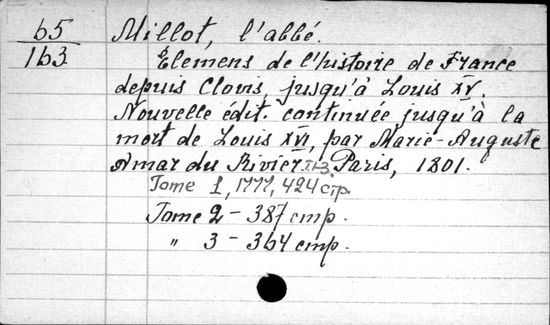 65 Millot, l'abbé.
163 Elemens de l'histoire de France
depuis Clovis, jusqu'à Louis XV.
Nouvelle édit. continuée jusqu'à la
mort de Louis XVI, par Marie-Auguste
Amar du Rivier. T.1-3. Paris, 1801.
Tome 1, 1777, 424 стр.
Tome 2 - 387 стр.
" 3 - 364 стр.